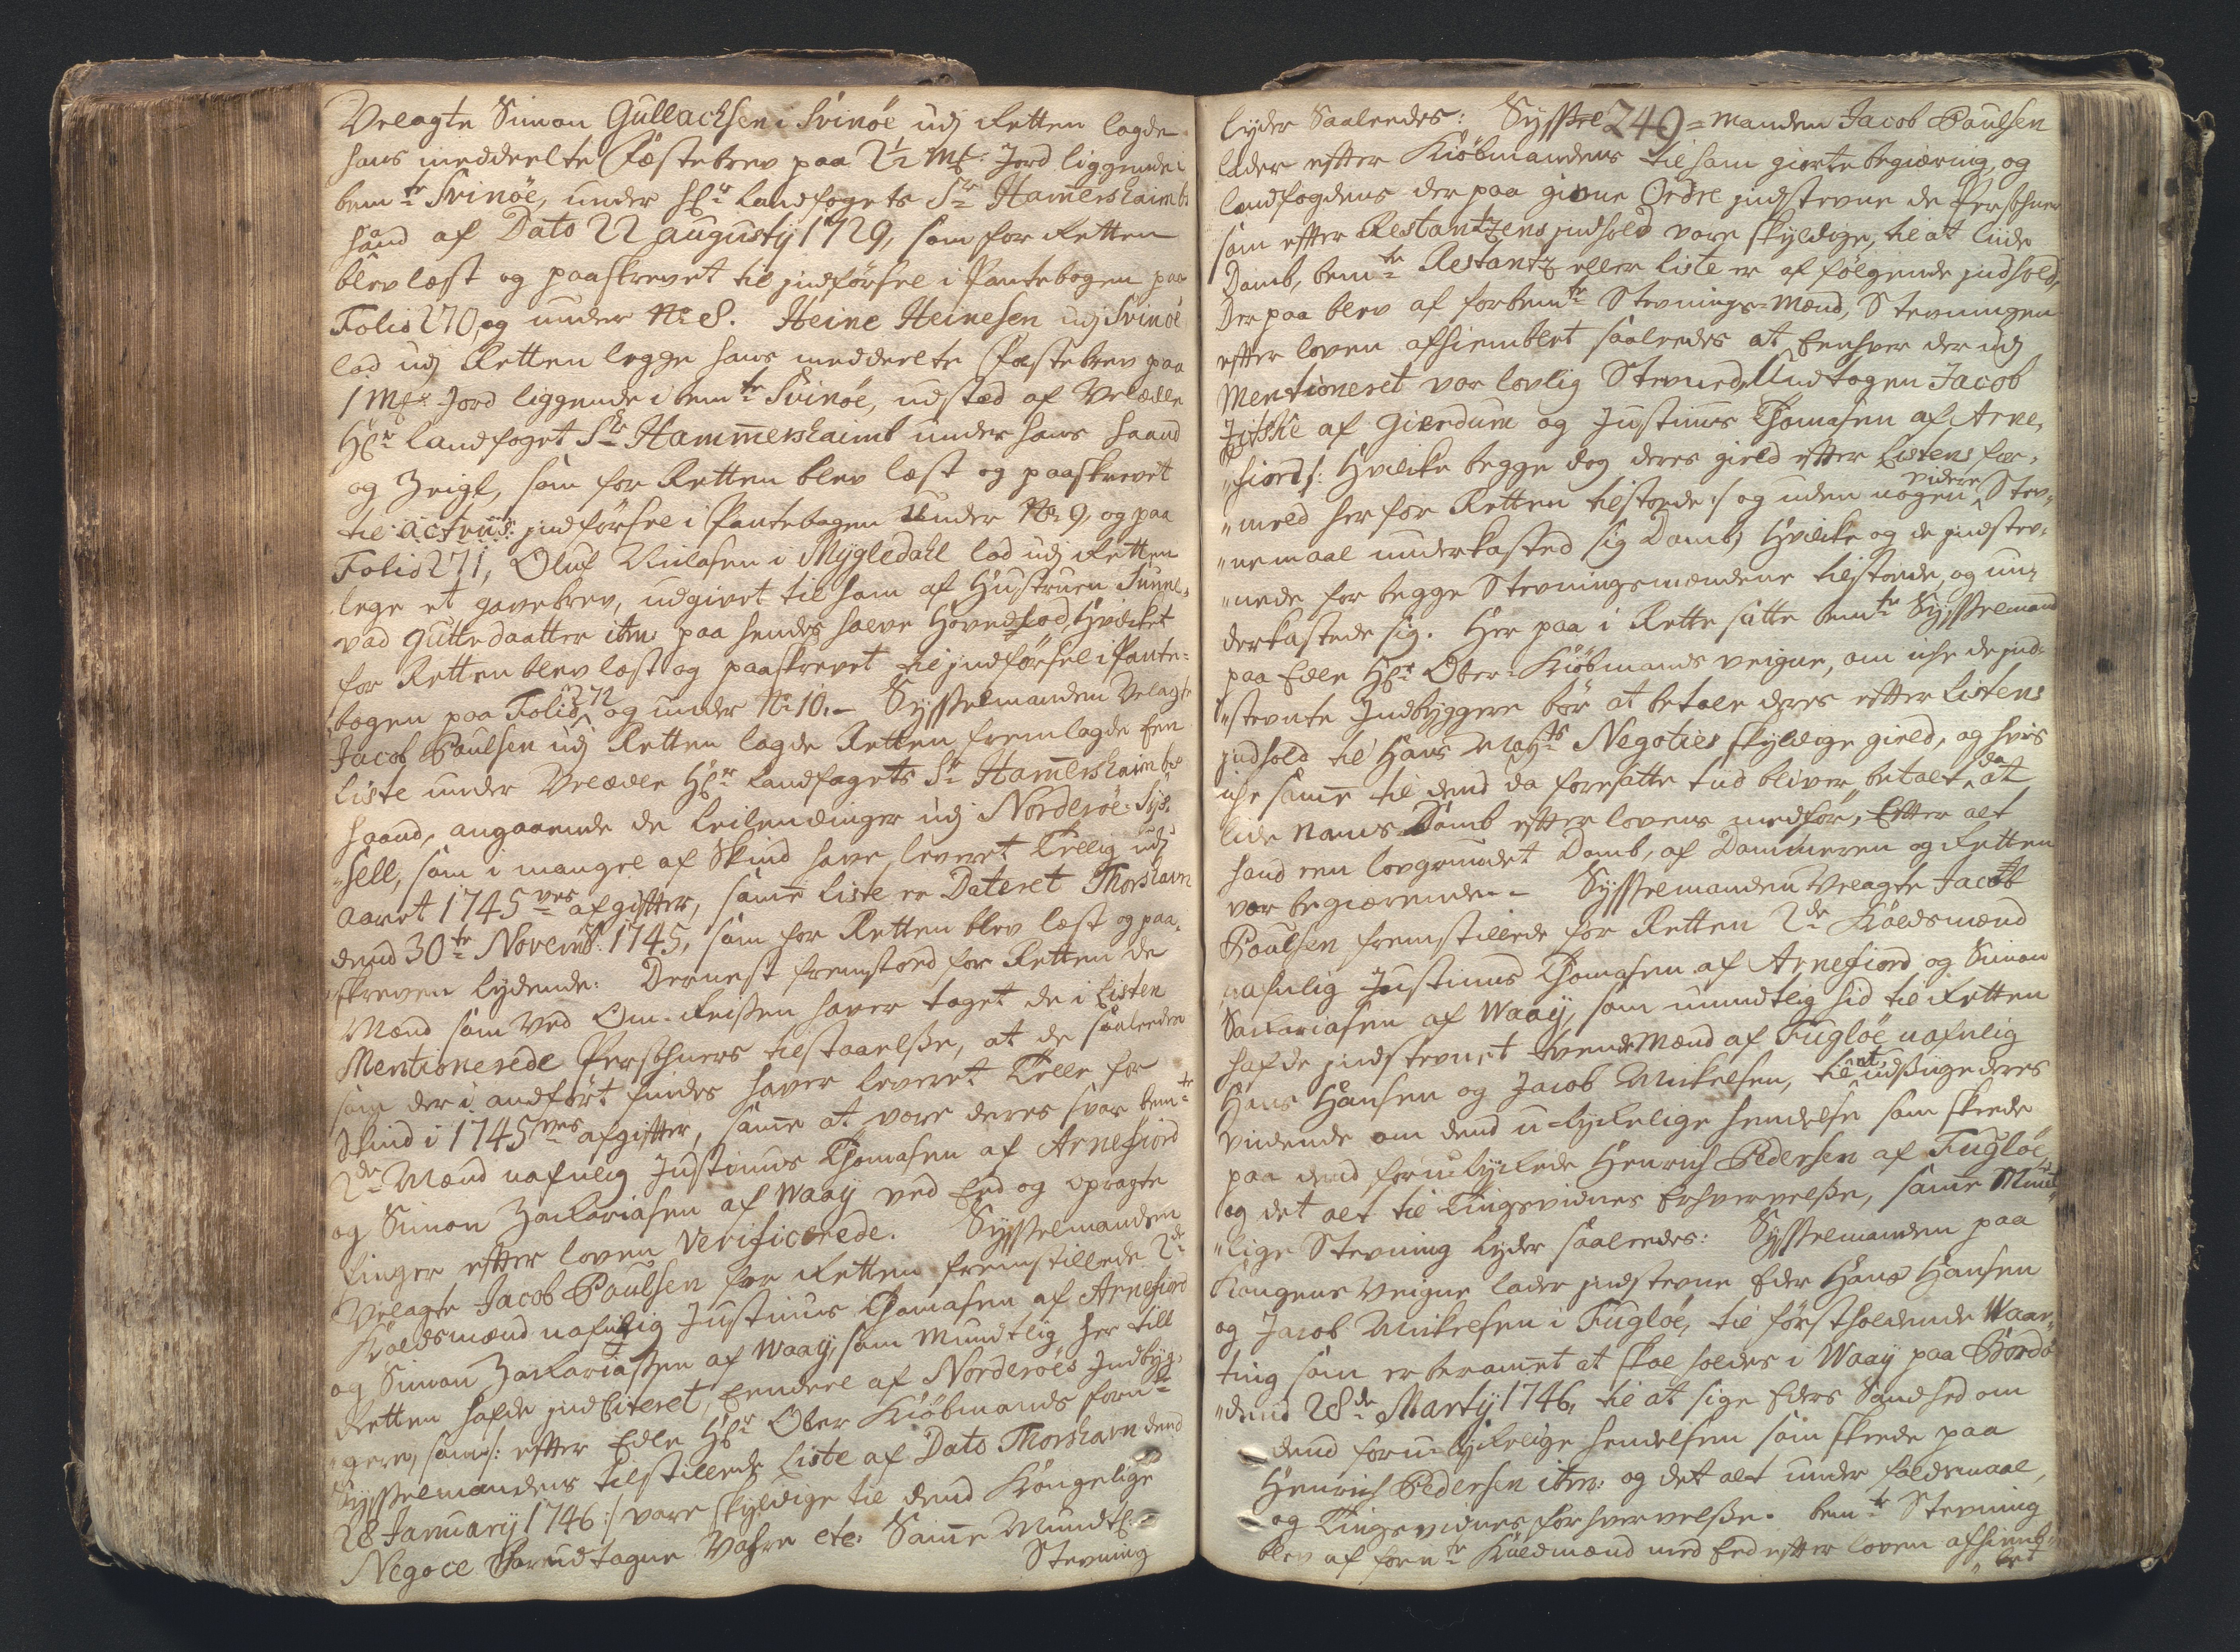 Velagte Simon Gullachsen i Svinöe udj Retten lagde
hans meddeelte Fæstebrev paa 2½ Mk: Jord liggende i
bemte Svinöe, under Hr Landfogets Sr Ham̅ershaimbs
haand af Dato 22 augustij 1729, som for Retten
blev læst og paaskrevet til jndförsel i Pantebogen paa
Folio 270, og under No 8. Heine Heinesen udj Svinöe
lod udj Retten legge hans meddeelte Fæstebrev paa
1 Mk: Jord liggende i bemte Svinöe, udstæd af Velædle
Hr Landfoget Sr Ham̅ershaimb under hans Haand
og Zeigl, som for Retten blev læst og paaskrevet
til actens jndförsel i Pantebogen under No 9, og paa
Folio 271, Oluf Nielasen i Mygledahl lod udj Retten
lege et gavebrev, udgivet til ham af Hustruen Sunne-
vad Guttedaatter item: paa hendes halve Hovedlod, Hvilket
for Retten blev læst og paaskrevet til jndförsel i Pante-
bogen paa Folio 272 og under No 10. – Sysselmanden Velagte
Jacob Paulsen udj Retten lagde Retten fremlagde Een
Liste under Velædle Hr Landfogets Sr Ham̅ershaimbs
haand, angaaende de Leilendinger udj Norderöe-Sys-
"sell, som i mangel af Skind have leveret Tellig udj
Aaret 1745ves afgifter, sam̅e Liste er Dateret Thorshavn
dend 30te Novemb: 1745, som for Retten blev læst og paa-
skreven lydende: Dernest fremstoed for Retten de
Mænd som ved Om-Reisen haver taget de i Listen
Mentionerede Persohners tilstaaelse, at de saaleedes
som der i andfört findes haver leveret Telle for
Skind i 1745ves afgifter, sam̅e at vare deres svar bemte
2de Mænd nafnlig Justinus Thomasen af Arnefiord
og Simon Zakariasen af Waaÿ ved Eed og opragte
Finger efter loven verificerede. Sysselmanden
Velagte Jacob Paulsen for Retten fremstillede 2de
Kaldsmænd nafnlig Justinus Thomasen af Arnefiord
og Simon Zakariassen af Waaÿ, som Mundtlig her till
Retten hafde jndCiteret, Eendeel af Norderöes Jndbyg-
"gere, som /: efter Edle Hr Ober Kiöbmands forn
Sysselmandens tilstillede Liste af Dato Thorshavn dend
28 Januarij 1746 :/ vare skyldige til dend Kongelige
Negoce for udtagne Vahre etc: Sam̅e Mundtl:
Stevning
lyder Saaleedes: Syssel 249 = manden Jacob Paulsen
lader efter Kiöbmandens til ham giorte begiæring, og
landfogdens der paa givne Ordre jndstevne de Persohner
som efter Restantzens jndhold vare skyldige, til at liide
Domb, bemte Restantz eller Liste er af fölgende jndhold,
Der paa blev af forbemte Stevnings-Mænd, Stevningen
efter loven afhiemblet saaleedes at Eenhver der udj
Mentioneret var lovlig Stevned, Undtagen Jacob
Jitske af Gierdum og Justinus Thomasen af Arne-
"fiord /: Hvilke begge dog deres gield efter Listens for-
"meld her for Retten tilstoede :/ og uden nogen videre Stev-
"nemaal underkasted sig Domb, Hvilke og de jndstev-
"nede for begge Stevningsmændene tilstoede, og un-
derkastede sig. Her paa i Rette satte bemte Sysselmand
paa Edle Hr Ober-Kiöbmands veigne, om iche de jnd-
"stevnte Jndbyggere bör at betale deres efter Listens
jndhold til Hans Maÿts Negoties skyldige gield, og hvis
iche sam̅e til dend da foresatte tiid bliver betalt, da at
lide Nams-Domb efter lovens medför, Efter alt
hand een lovgrundet Domb, af Dommeren og Retten
var begiærende. – Sysselmanden Velagte Jacob
Paulsen fremstillede for Retten 2de Kaldsmænd
nafnlig Justinus Thomasen af Arnefiord og Simon
Sakariasen af Waaÿ, som mundtlig hid til Retten
hafde jndstevnet tvende Mænd af Fuglöe nafnlig
Hans Hansen og Jacob Mikelsen, til at udsige deres
vidende om dend u-lykelige hendelse som skeede
paa dend forulykkede Henrich Pedersen af Fuglöe,
og det alt til Tingsvidnes Erhvervelse, sam̅e Mundt-
"lige Stevning lyder saaleedes: Sysselmanden paa
Kongens Veigne lader jndstevne Eder Hans Hansen
og Jacob Mikelsen i Fuglöe, til förstholdende Waar-
ting som er beram̅et at skal holdes i Waaÿ paa Bordö
"dend 28de Martij 1746, til at sige Eders Sandhed om
dend foru-lykelige hendelsen som skeede paa
Henrich Pedersen item: og det alt under faldsmaal,
og Tingsvidnes forhvervelse. bemte Stevning
blev af fornte Kaldsmænd med Eed efter loven afhiemb-
"let